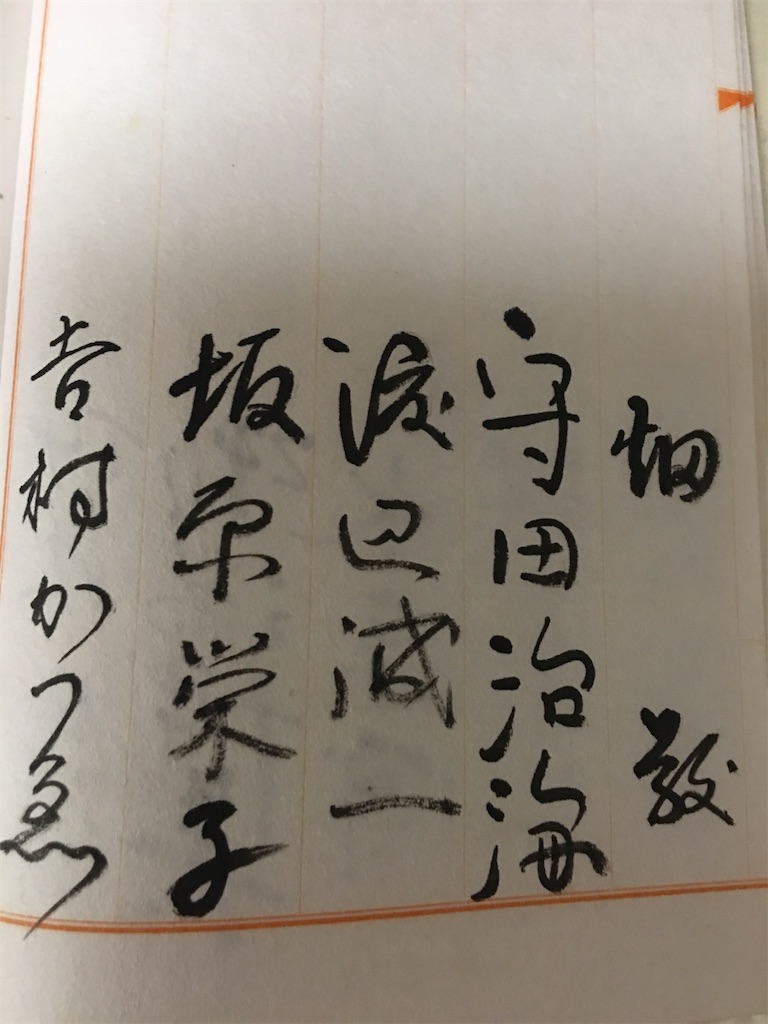 畑 敬
守田治海
渡辺誠一
坂原栄子
吉村かつゑ